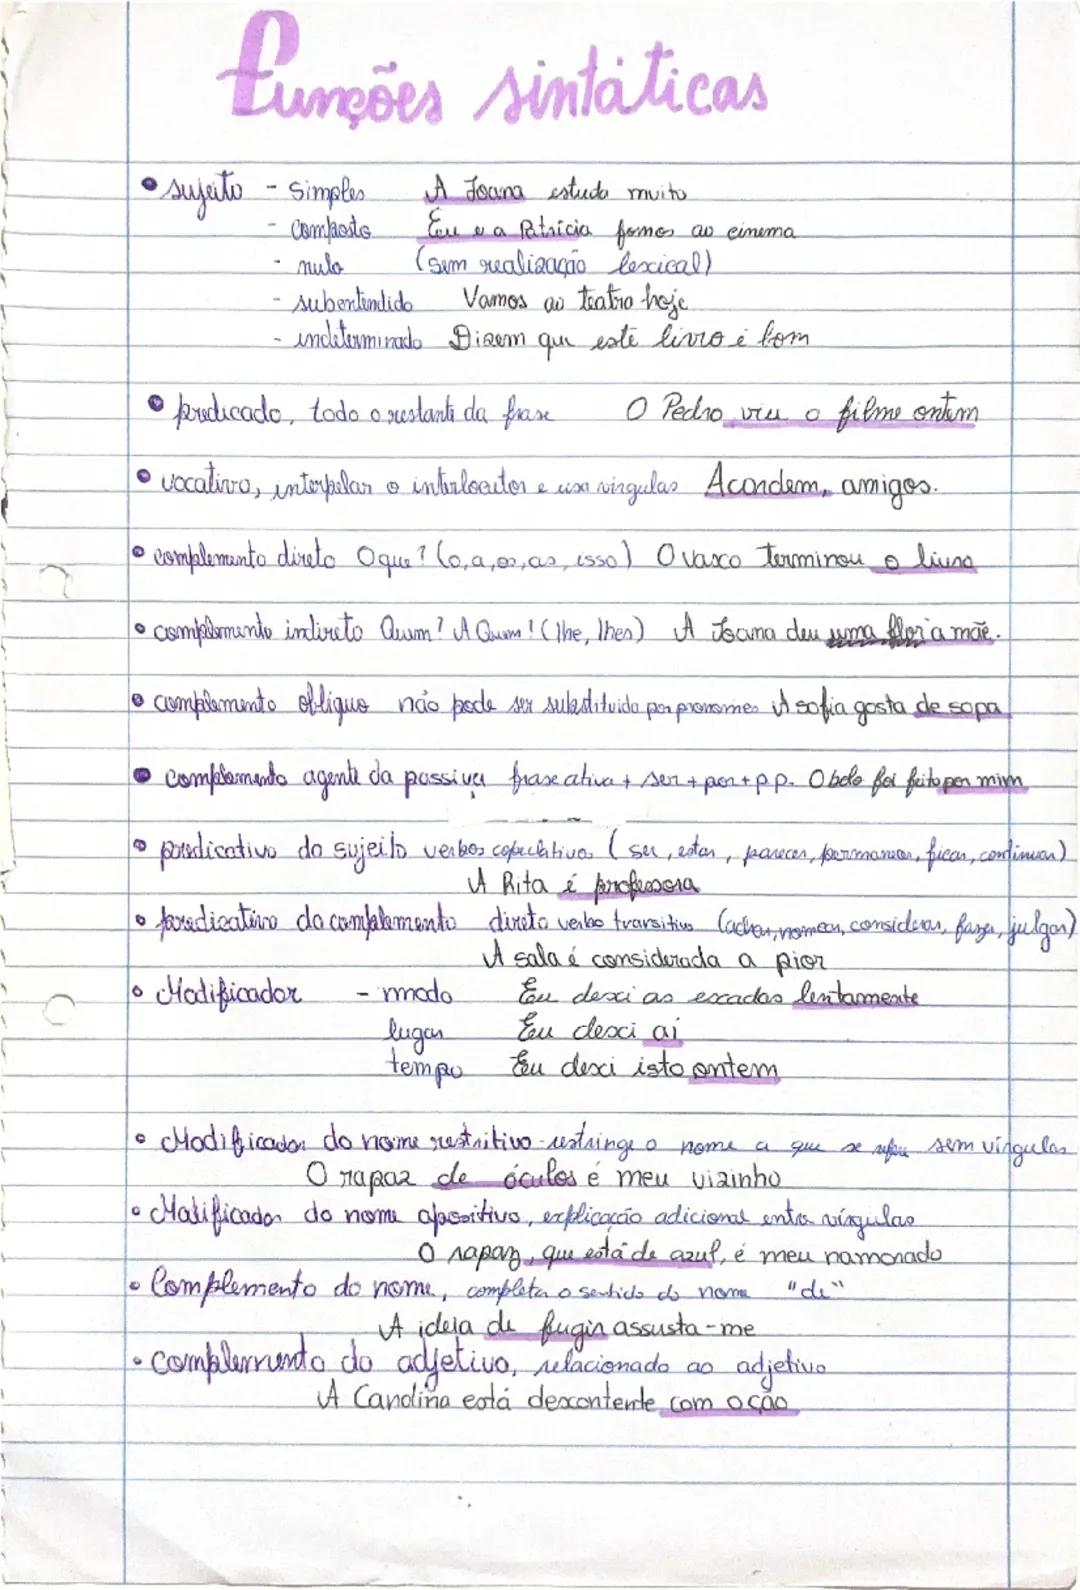 Funções sintáticas
• sujeito - simples A Joana estuda muito
- composto Eu e a Patrícia fomos ao cinema
- nulo (sem realização lexical)
- subentendido Vamos ao teatro hoje
- indeterminado Dizem que este livro é bom
• predicado, todo o restante da frase O Pedro viu o filme ontem
• vocativo, interpelar o interlocutor e usa vírgulas Acordem, amigos.
• complemento direto O que? (o, a, os, as, isso) O vasco terminou o livro
• complemento indireto Quem? A Quem? (lhe, lhes) A Joana deu uma flor à mãe.
• complemento oblíquo não pode ser substituido por pronomes A sofia gosta de sopa
• complemento agente da passiva frase ativa + ser + por + p.p. O bolo foi feito por mim
• predicativo do sujeito verbos copulativos (ser, estar, parecer, permanecer, ficar, continuar)
A Rita é professora
• predicativo do complemento direto verbo transitivo (achar, nomear, considerar, fazer, julgar)
A sala é considerada a pior
• Modificador - modo Eu desci as escadas lentamente
lugar Eu desci aí
tempo Eu desci isto ontem
• Modificador do nome restritivo - restringe o nome a que se refere sem vírgulas
O rapaz de óculos é meu vizinho
• Modificador do nome apositivo, explicação adicional entre vírgulas
O rapaz, que está de azul, é meu namorado
• Complemento do nome, completa o sentido do nome "de"
A ideia de fugir assusta-me
• complemento do adjetivo, relacionado ao adjetivo
A Carolina está descontente com o cão